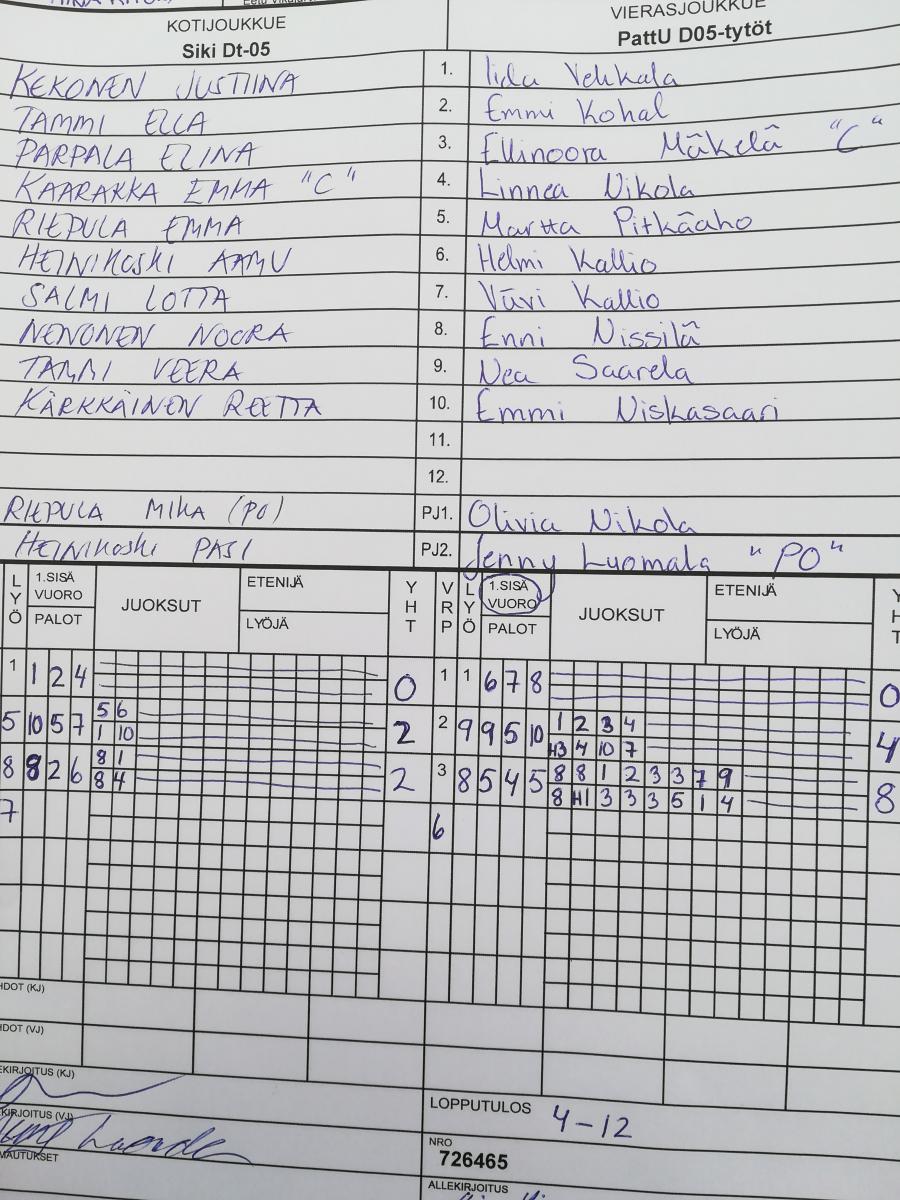 KOTIJOUKKUE VIERASJOUKKUE
Siki Dt-05 PattU D05-tytöt
KEKONEN JUSTIINA 1. Iida Vehkala
TAMMI ELLA 2. Emmi Kohal
PARPALA ELINA 3. Ellinoora Mäkelä "C"
KAARAKKA EMMA "C" 4. Linnea Nikola
RIEPULA EMMA 5. Martta Pitkäaho
HEINIKOSKI AAMU 6. Helmi Kallio
SALMI LOTTA 7. Viivi Kallio
NENONEN NOORA 8. Enni Nissilä
TAMMI VEERA 9. Nea Saarela
KÄRKKÄINEN REETTA 10. Emmi Niskasaari
11.
12.
RIEPULA MIKA (PO) PJ1. Olivia Nikola
HEINIKOSKI PASI PJ2. Jenny Luomala "PO"
LYÖ 1.SISÄ VUORO PALOT JUOKSUT ETENIJÄ LYÖJÄ YHT VRP LYÖ 1.SISÄ VUORO PALOT JUOKSUT ETENIJÄ LYÖJÄ YHT
1 1 2 4 0 1 1 6 7 8 0
5 10 5 7 5 6 2 2 9 9 5 10 1 2 3 4 4
1 10 H3 4 10 7
8 8 2 6 8 1 2 3 8 5 4 5 8 8 1 2 3 3 7 9 8
8 4 8 H1 3 3 3 5 1 4
7 6
HDOT (KJ)
HDOT (VJ)
EKIRJOITUS (KJ)
KIRJOITUS (VJ)
MAUTUKSET
LOPPUTULOS 4-12
NRO
726465
ALLEKIRJOITUS